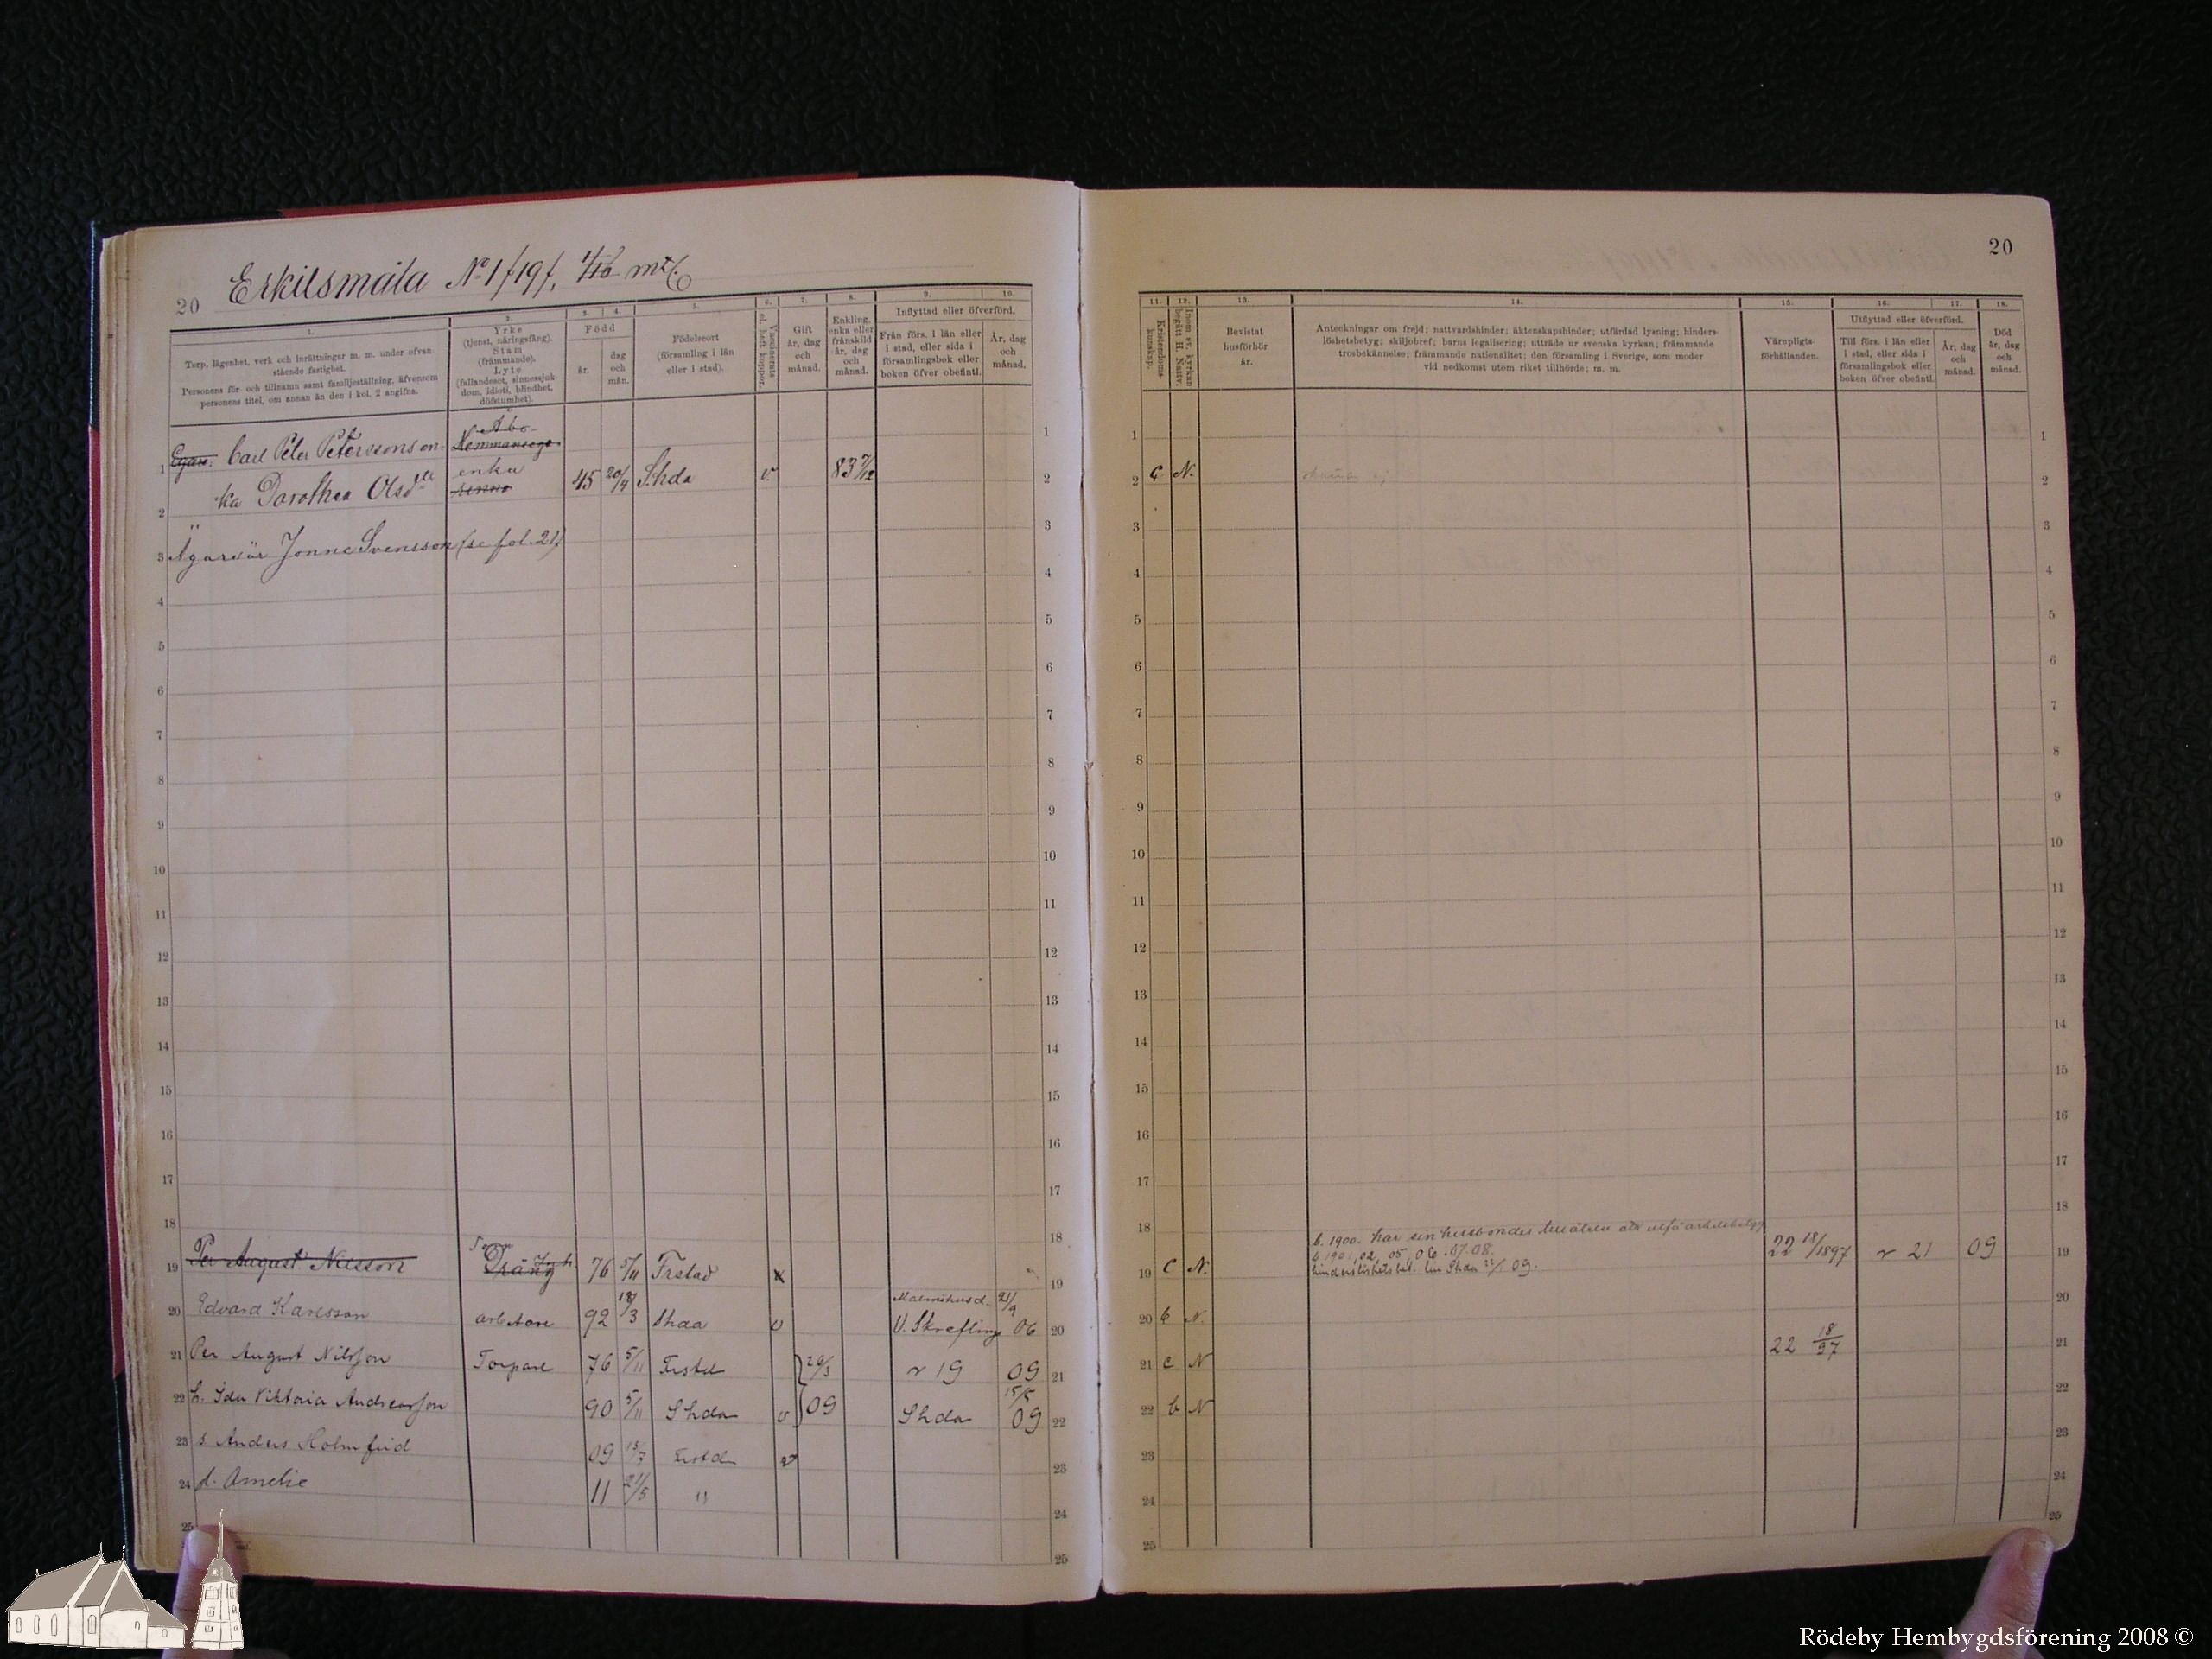 20 Erkilsmåla No 1 /19/, 1/16 mtl.
1.
Torp, lägenhet, verk och inrättningar m. m. under ofvan-
stående fastighet.
Personens för- och tillnamn samt familjeställning, äfvensom
personens titel, om annan än den i kol. 2 angifna.
2.
Yrke
(tjenst, näringsfång).
Stam
(främmande).
Lyte
(fallandesot, sinnessjuk-
dom, idioti, blindhet,
döfstumhet).
3. 4.
Född
år.
dag
och
mån.
5.
Födelseort
(församling i län
eller i stad).
6.
Vaccinerats
el. haft koppor.
7.
Gift
år, dag
och
månad.
8.
Enkling,
enka eller
frånskild
år, dag
och
månad.
9. 10.
Inflyttad eller öfverförd.
Från förs. i län eller
i stad, eller sida i
församlingsbok eller
boken öfver obefintl.
År, dag
och
månad.
Åbo-
1 Egare. Carl Peter Peterssons en- Hemmansega- 1
2 ka Dorothea Olsdtr enka 45 20/4 S:hda v. 83 7/12 2
3 Ägare är Jonne Svensson (se fol. 21) 3
4 4
5 5
6 6
7 7
8 8
9 9
10 10
11 11
12 12
13 13
14 14
15 15
16 16
17 17
18 18
19 Per August Nilsson Dräng 76 5/11 Frstad 19
20 Edvard Karlsson arbetare 92 18/3 Shda v Malmöhus l. V. Skrefling 21/9 06 20
21 Per August Nilsson Torpare 76 5/11 Frstd 26/3 r 19 09 21
22 h. Ida Viktoria Andersson 90 5/11 Shda v 09 Shda 15/5 09 22
23 s Anders Holmfrid 09 13/7 Frstd v 23
24 d. Amelie 11 21/5 " 24
25 25
20
11.
Kristendoms-
kunskap.
12.
Inom sv. kyrkan
begått H. Nattv.
13.
Bevistat
husförhör
år.
14.
Anteckningar om frejd; nattvardshinder; äktenskapshinder; utfärdad lysning; hinders-
löshetsbetyg; skiljobref; barns legalisering; utträde ur svenska kyrkan; främmande
trosbekännelse; främmande nationalitet; den församling i Sverige, som moder
vid nedkomst utom riket tillhörde; m. m.
15.
Värnpligts-
förhållanden.
16. 17.
Utflyttad eller öfverförd.
Till förs. i län eller
i stad, eller sida i
församlingsbok eller
boken öfver obefintl.
År, dag
och
månad.
18.
Död
år, dag
och
månad.
1 1
2 C N. 2
3 3
4 4
5 5
6 6
7 7
8 8
9 9
10 10
11 11
12 12
13 13
14 14
15 15
16 16
17 17
18 18
b. 1900. har sin husbondes tillåtelse att utfå arbetsbetyg
b. 1901, 02, 05, 06, 07, 08.
19 C N. hinderslöshetsbet. Shda 09. 22 18/1897 r 21 09 19
20 b N. 20
21 c N 22 18/97 21
22 b N 22
23 23
24 24
25 25
Rödeby Hembygdsförening 2008 ©